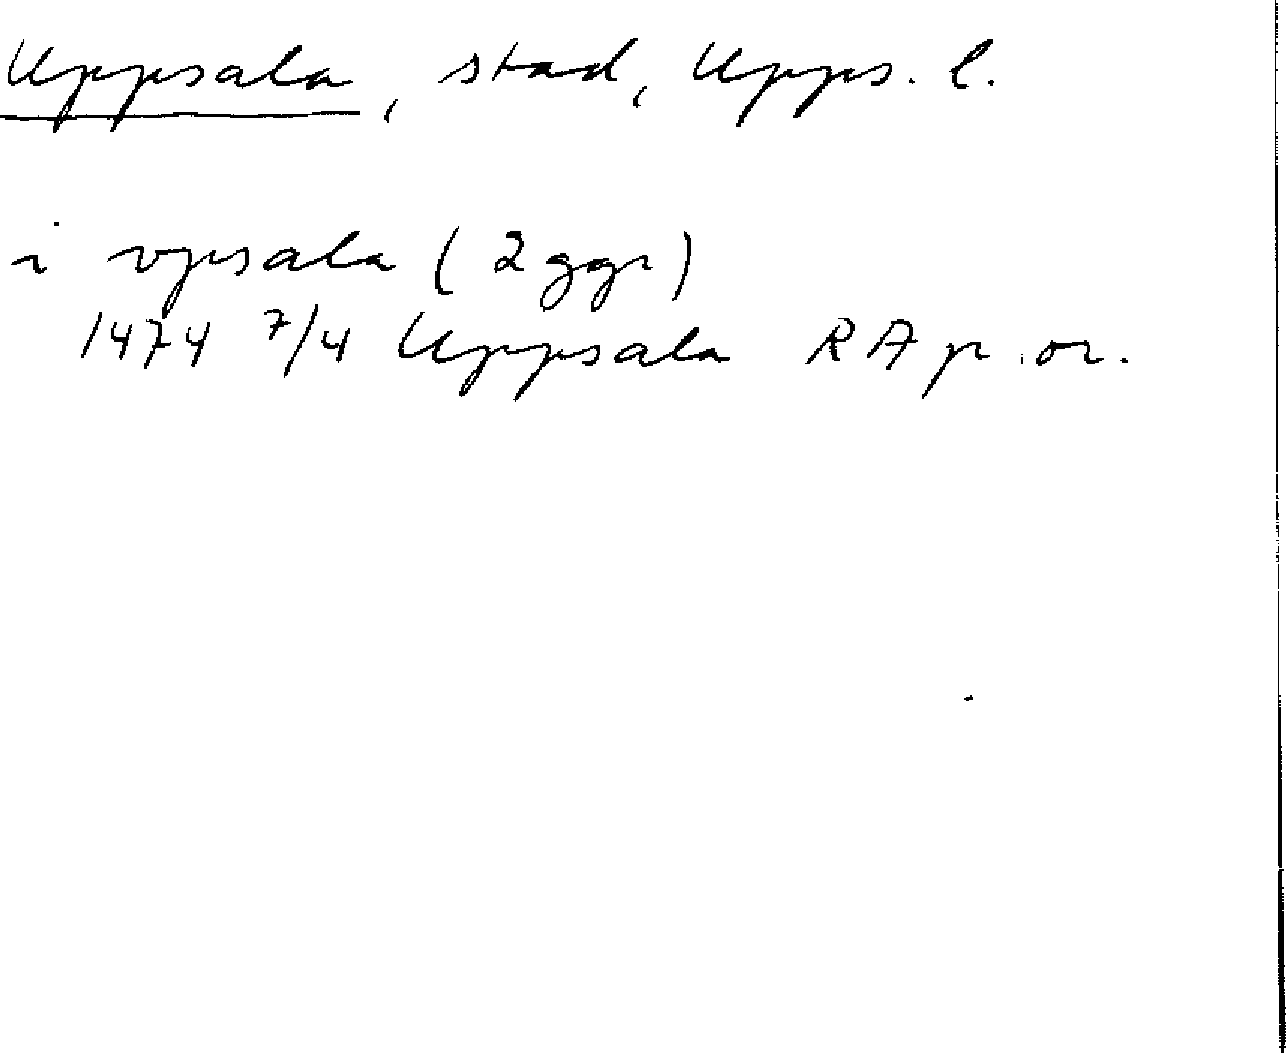 Uppsala, stad, Upps. l.
i vpsala (2 ggr)
1474 7/4 Uppsala RA p. or.